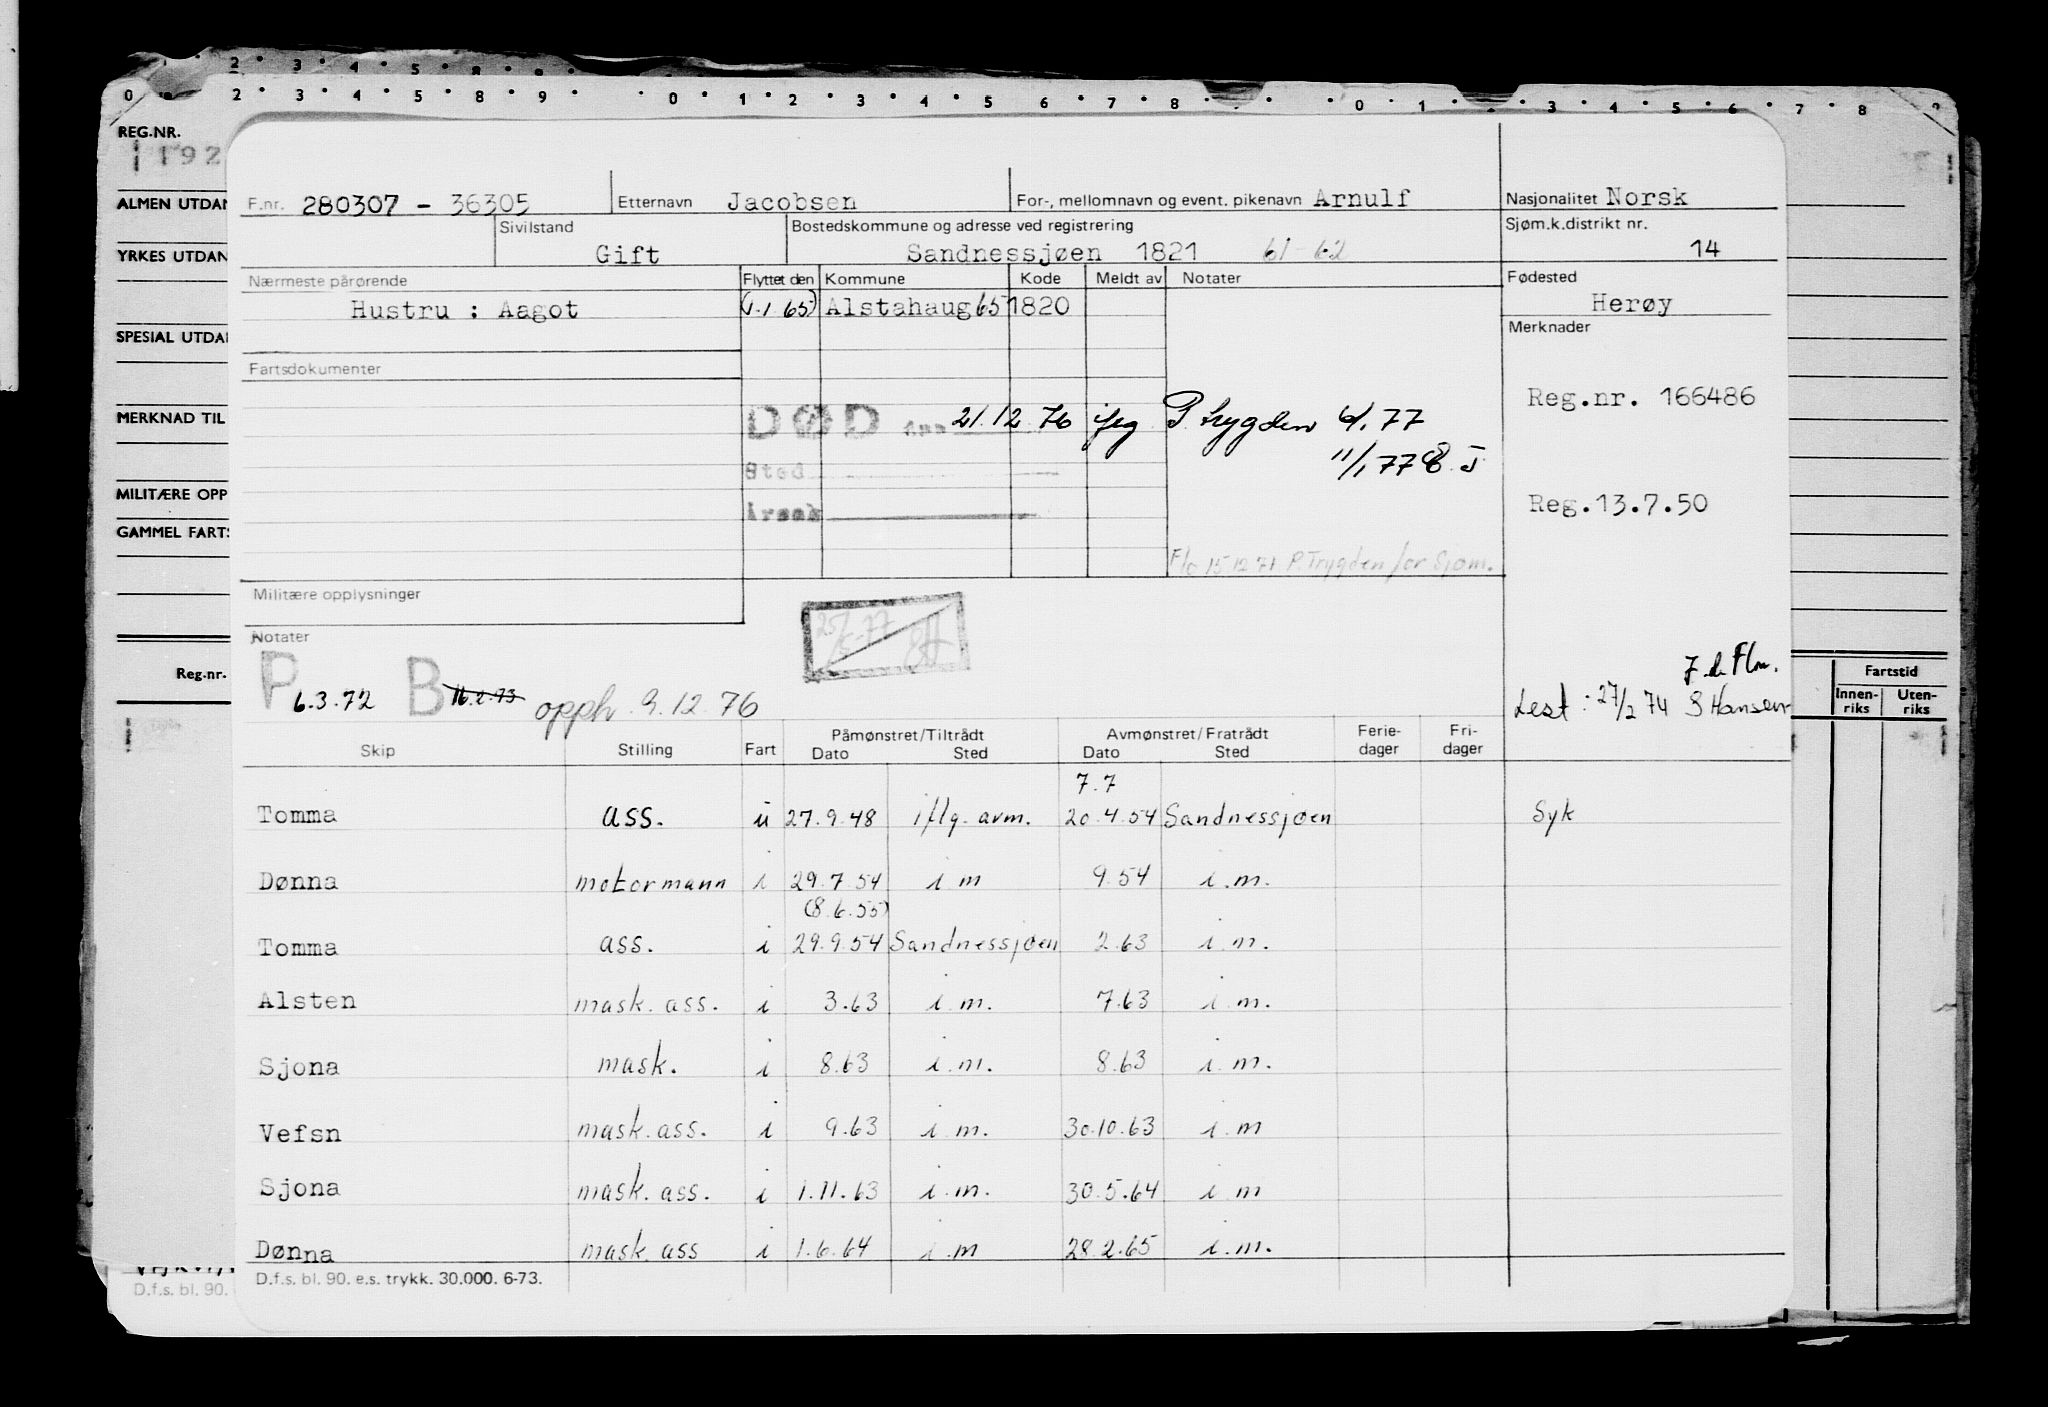 2 3 4 5 8 9
0 2 3 4 5 8 9 0 1 2 3 4 5 6 7 8 0 1 3 4 5 6 7 8
REG.NR.
192
ALMEN UTDAN
YRKES UTDAN
SPESIAL UTDAN
MERKNAD TIL
MILITÆRE OPP
GAMMEL FARTS
Reg.nr.
F.nr. 280307 - 36305 Etternavn Jacobsen For-, mellomnavn og event. pikenavn Arnulf Nasjonalitet Norsk
Sivilstand Gift Bostedskommune og adresse ved registrering Sandnessjøen 1821 61-62 Sjøm.k.distrikt nr. 14
Nærmeste pårørende Flyttet den Kommune Kode Meldt av Notater Fødested
Hustru : Aagot (1.1 65) Alstahaug 65 1820 Herøy
Merknader
Fartsdokumenter
Reg.nr. 166486
DØD den 21.12.76 P. trygden 6/1.77
11/1.77
Sted
Årsak
Reg.13.7.50
15.12.71 P.Trygden for Sjøm.
Militære opplysninger
Notater
P 6.3.72 B 16.2.73 opph. 9.12.76
Lest : 27/2 74 S Hansen
Fartstid
Innen-riks Uten-riks
Skip Stilling Fart Påmønstret/Tiltrådt Dato Sted Avmønstret/Fratrådt Dato Sted Ferie-dager Fri-dager
7.7
Tomma ass. u 27.9.48 iflg. avm. 20.4.54 Sandnessjøen Syk
Dønna motormann i 29.7.54 i m 9.54 i.m.
(8.6.55)
Tomma ass. i 29.9.54 Sandnessjøen 2.63 i.m.
Alsten mask. ass. i 3.63 i.m. 7.63 i.m.
Sjona mask. i 8.63 i.m. 8.63 i.m.
Vefsn mask. ass. i 9.63 i.m. 30.10.63 i.m
Sjona mask. ass. i 1.11.63 i.m. 30.5.64 i m
Dønna mask. ass i 1.6.64 i.m 28.2.65 i.m.
D.f.s. bl. 90. e.s. trykk. 30.000. 6-73.
D.f.s. bl. 90.